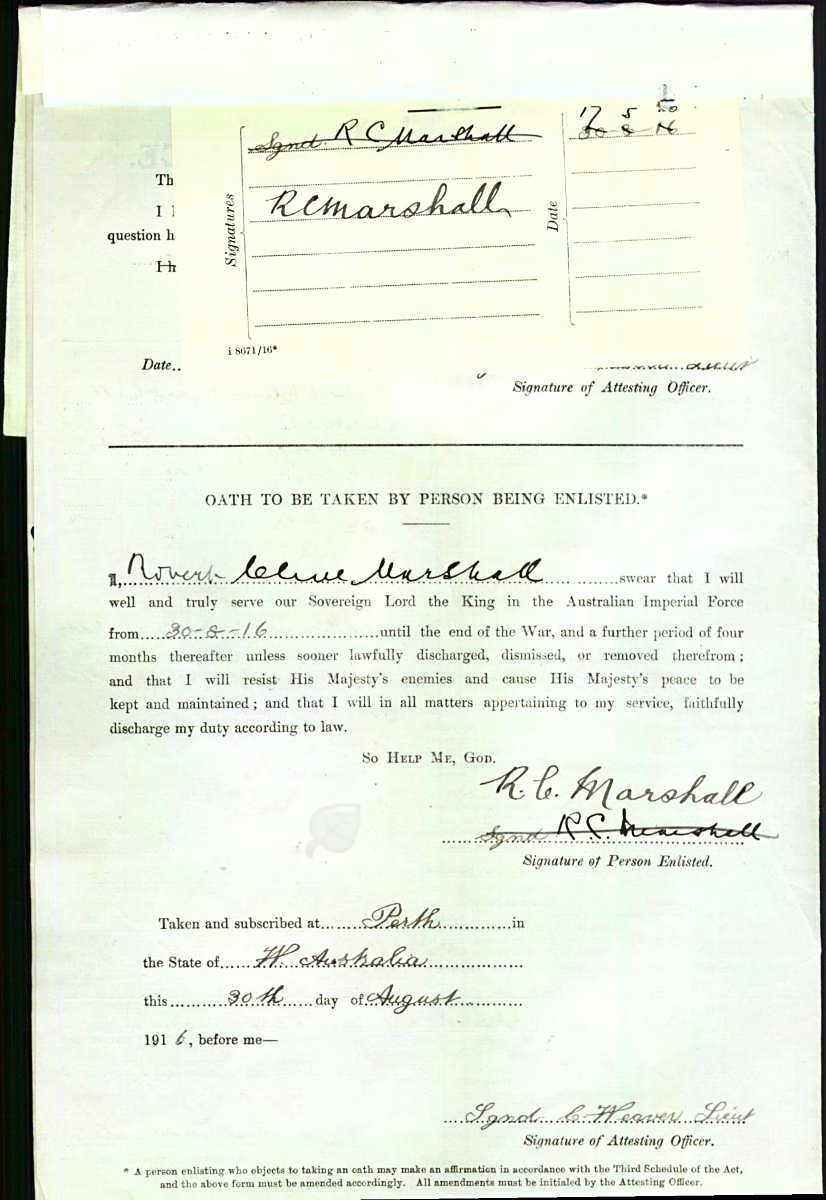 Sgnd. R C Marshall
17 5 20
30 8 16
Signatures
R C Marshall
Date
Th
I
question h
I h
i 8671/16*
Date..
Lieut
Signature of Attesting Officer.
OATH TO BE TAKEN BY PERSON BEING ENLISTED.*
I, Robert Clive Marshall swear that I will
well and truly serve our Sovereign Lord the King in the Australian Imperial Force
from 30-8-16 until the end of the War, and a further period of four
months thereafter unless sooner lawfully discharged, dismissed, or removed therefrom;
and that I will resist His Majesty's enemies and cause His Majesty's peace to be
kept and maintained; and that I will in all matters appertaining to my service, faithfully
discharge my duty according to law.
So Help Me, God.
R. C. Marshall
Sgnd R. C. Marshall
Signature of Person Enlisted.
Taken and subscribed at Perth in
the State of W. Australia
this 30th day of August
1916, before me—
Sgnd C Weaver Lieut
Signature of Attesting Officer.
* A person enlisting who objects to taking an oath may make an affirmation in accordance with the Third Schedule of the Act,
and the above form must be amended accordingly. All amendments must be initialed by the Attesting Officer.